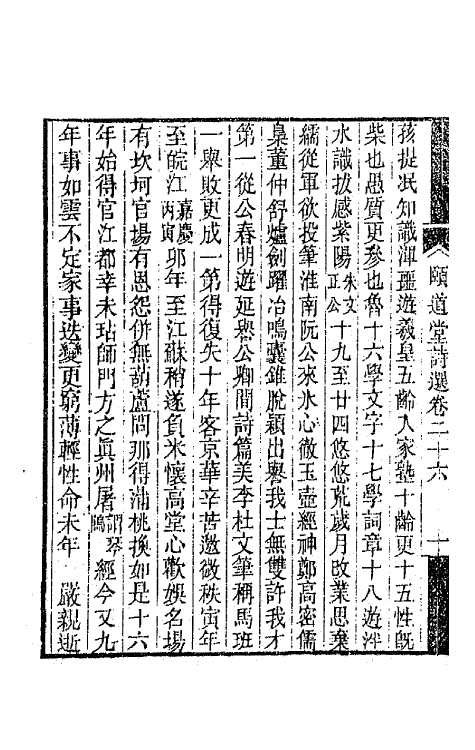 頤道堂詩選卷二十六
孩提泯知識渾噩遊羲皇五齡入家塾十齡更十五性既
柴也愚質更參也魯十六學文字十七學詞章十八遊泮
水識拔感紫陽朱文正公十九至廿四悠悠荒歲月改業思棄
繻從軍欲投筆淮南阮公來氷心徹玉壺經神鄭高密儒
臬董仲舒爐劍躍冶鳴囊錐脫穎出譽我士無雙許我才
第一從公春明遊延譽公卿間詩篇美李杜文筆稱馬班
一舉敗更成一第得復失十年客京華辛苦邀微秩寅年
至皖江嘉慶丙寅卯年至江蘇稍遂負米懷高堂心歡娛名場
有坎坷官場有恩怨併無葫蘆問那得蒲桃換如是十六
年始得官江都幸未玷師門方之眞州屠謂琴隖經今又九
年事如雲不定家事迭變更窮薄輕性命未年嚴親逝